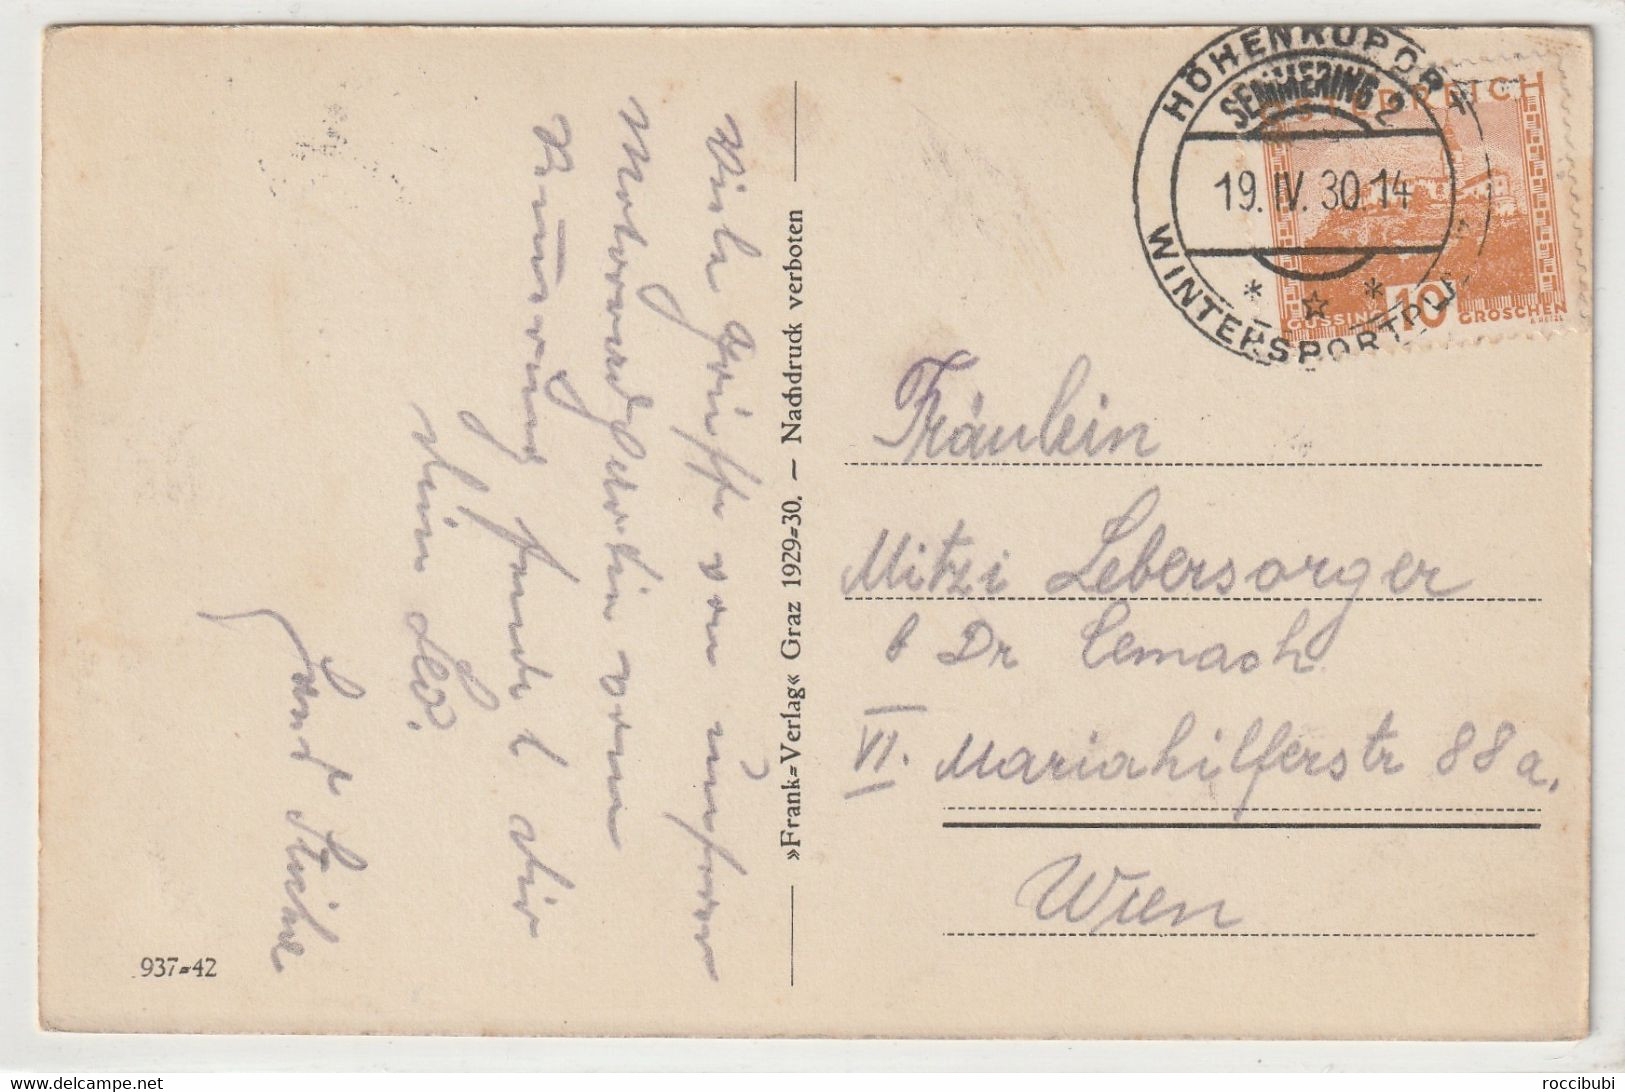 HÖHENKURORT
SEMMERING 2
19. IV. 30. 14
WINTERSPORTPL
ÖSTERREICH
GÜSSING 10 GROSCHEN
Viele Grüsse von unserer
Motorradfahrt vom
Semmering sendet dir
dein Leo.
»Frank-Verlag« Graz 1929-30. — Nachdruck verboten
Fräulein
Mitzi Lebersorger
b Dr Cemach
VI. Mariahilferstr 88 a.
Wien
937-42
www.delcampe.net
roccibubi